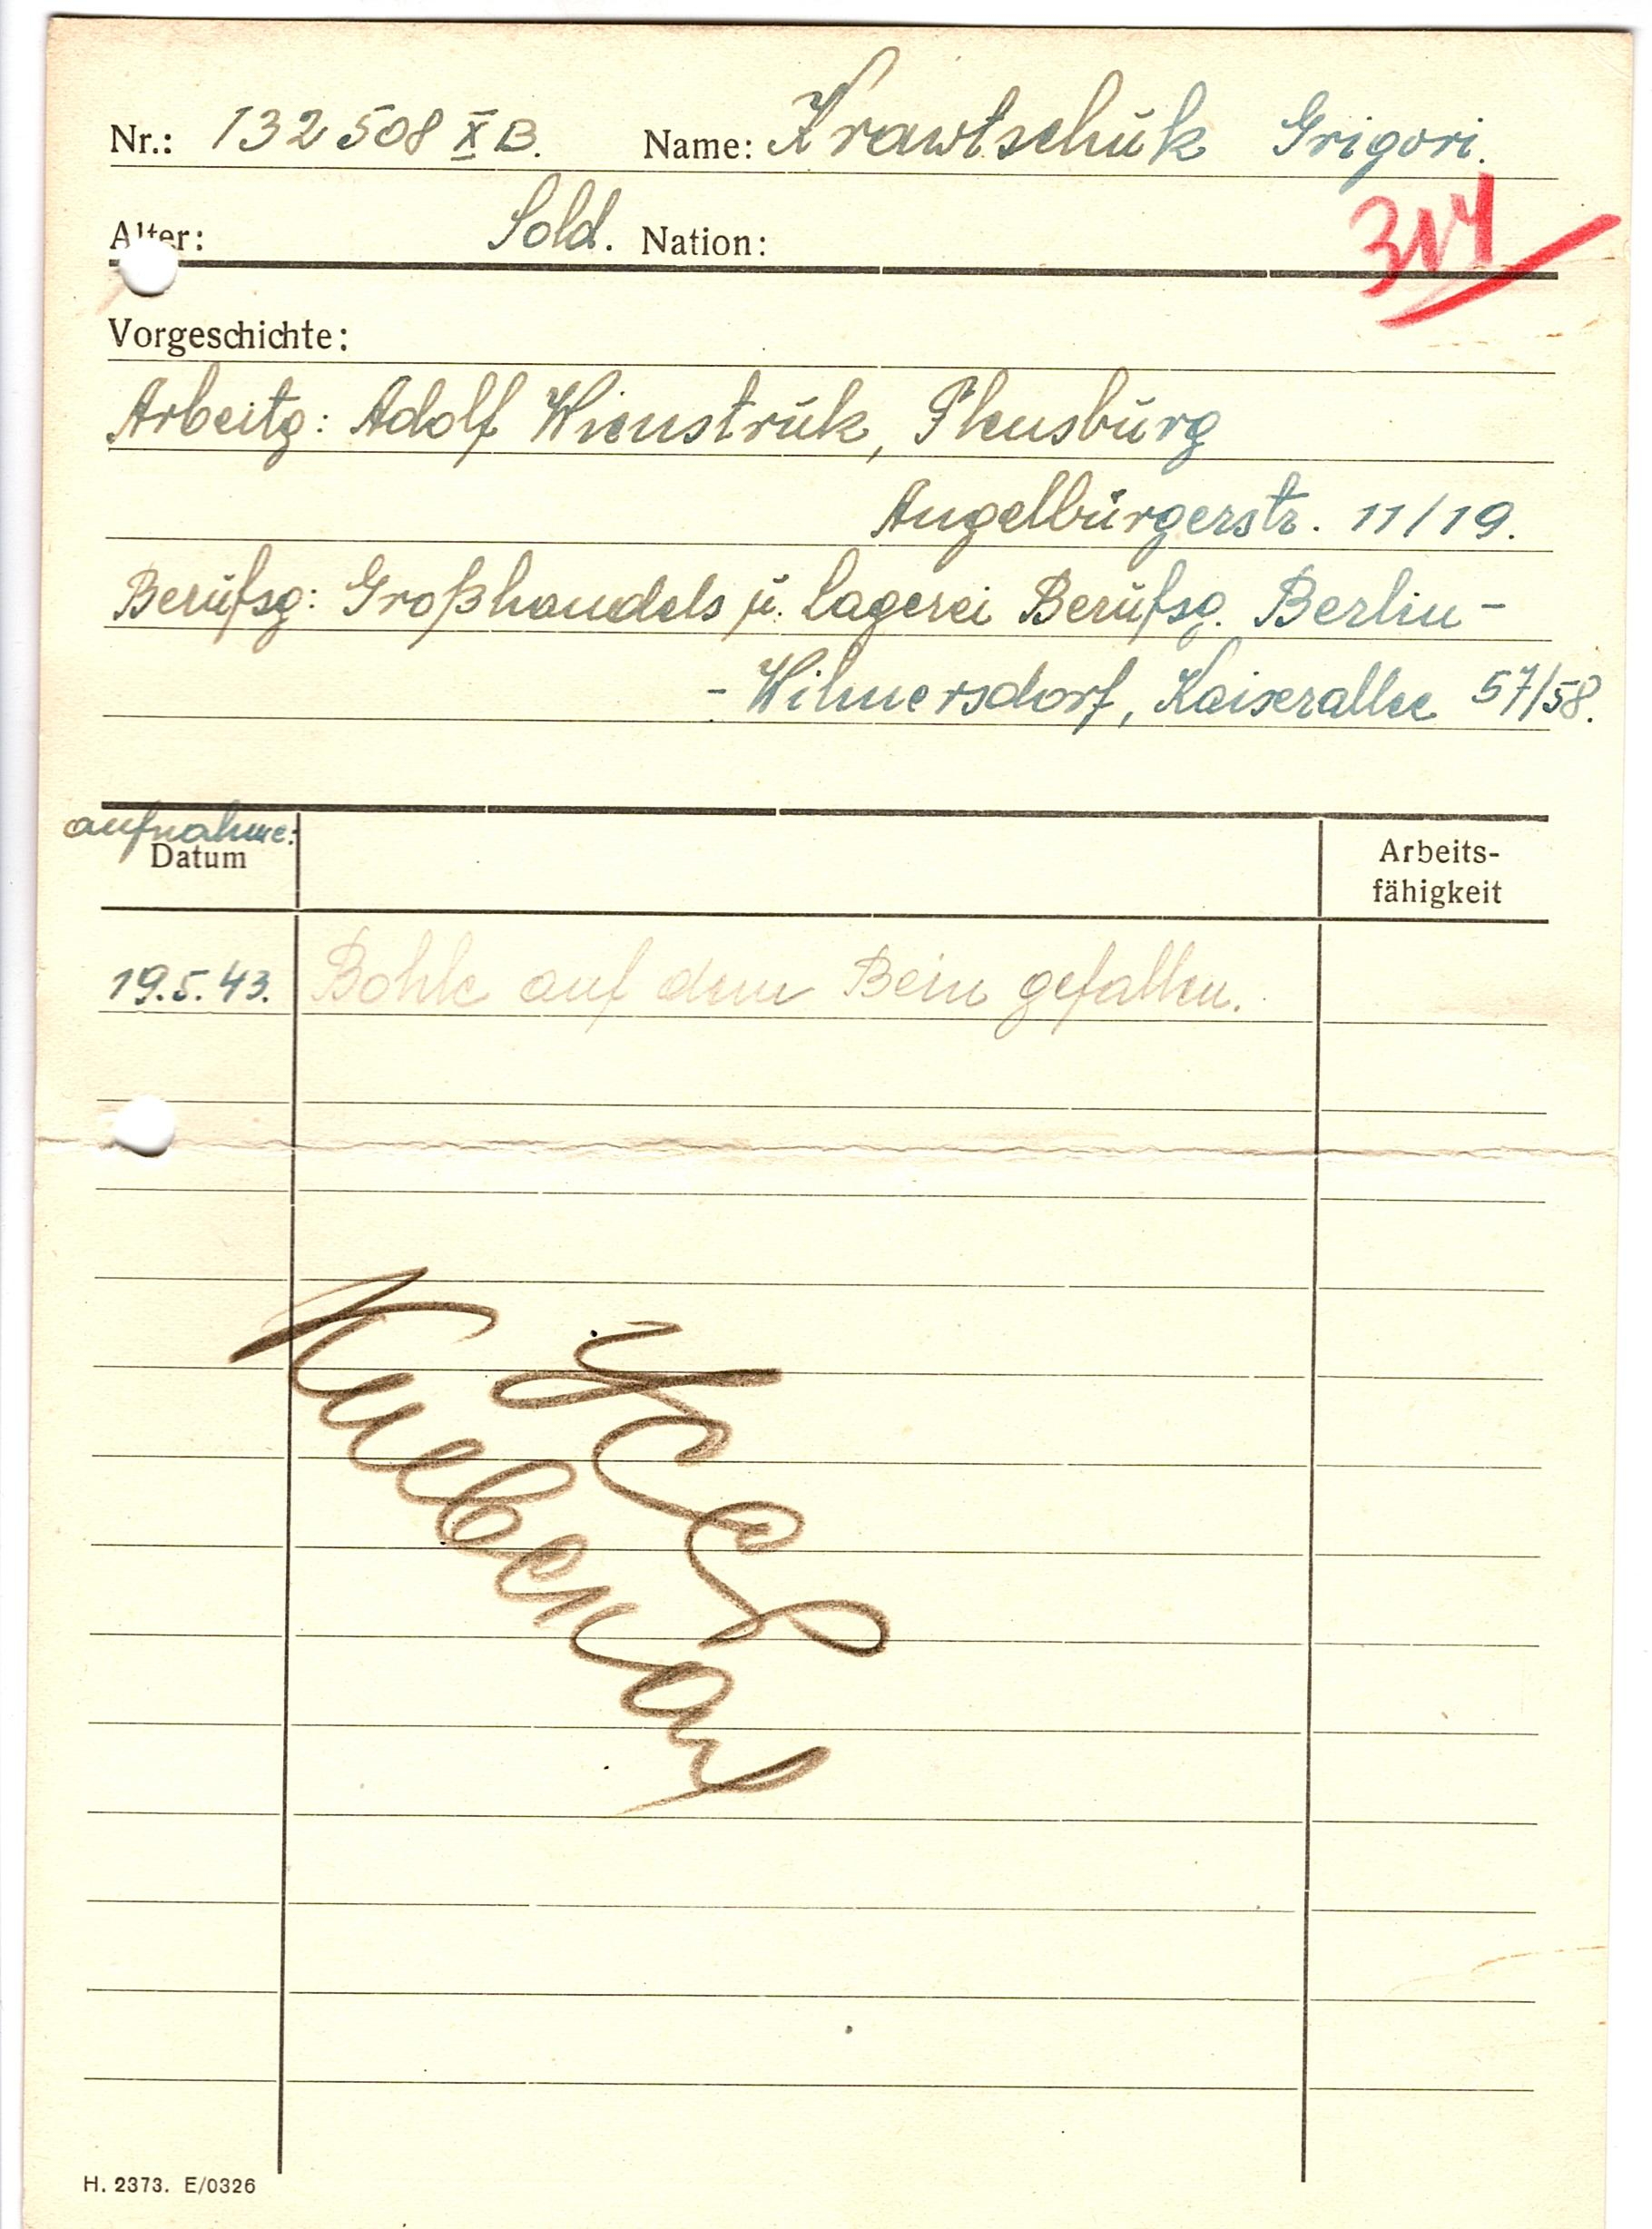 Nr.: 132508 X B. Name: Krawtschuk Grigori.
Alter: Sold. Nation:
317
Vorgeschichte:
Arbeitg: Adolf Wienstruk, Flensburg
Angelbürgerstr. 11/19.
Berufsg: Großhandels u. Lagerei Berufsg. Berlin-
- Wilmersdorf, Kaiserallee 57/58.
aufnahme:
Datum
Arbeits-
fähigkeit
19.5.43. Bohle auf dem Bein gefallen.
H. 2373. E/0326